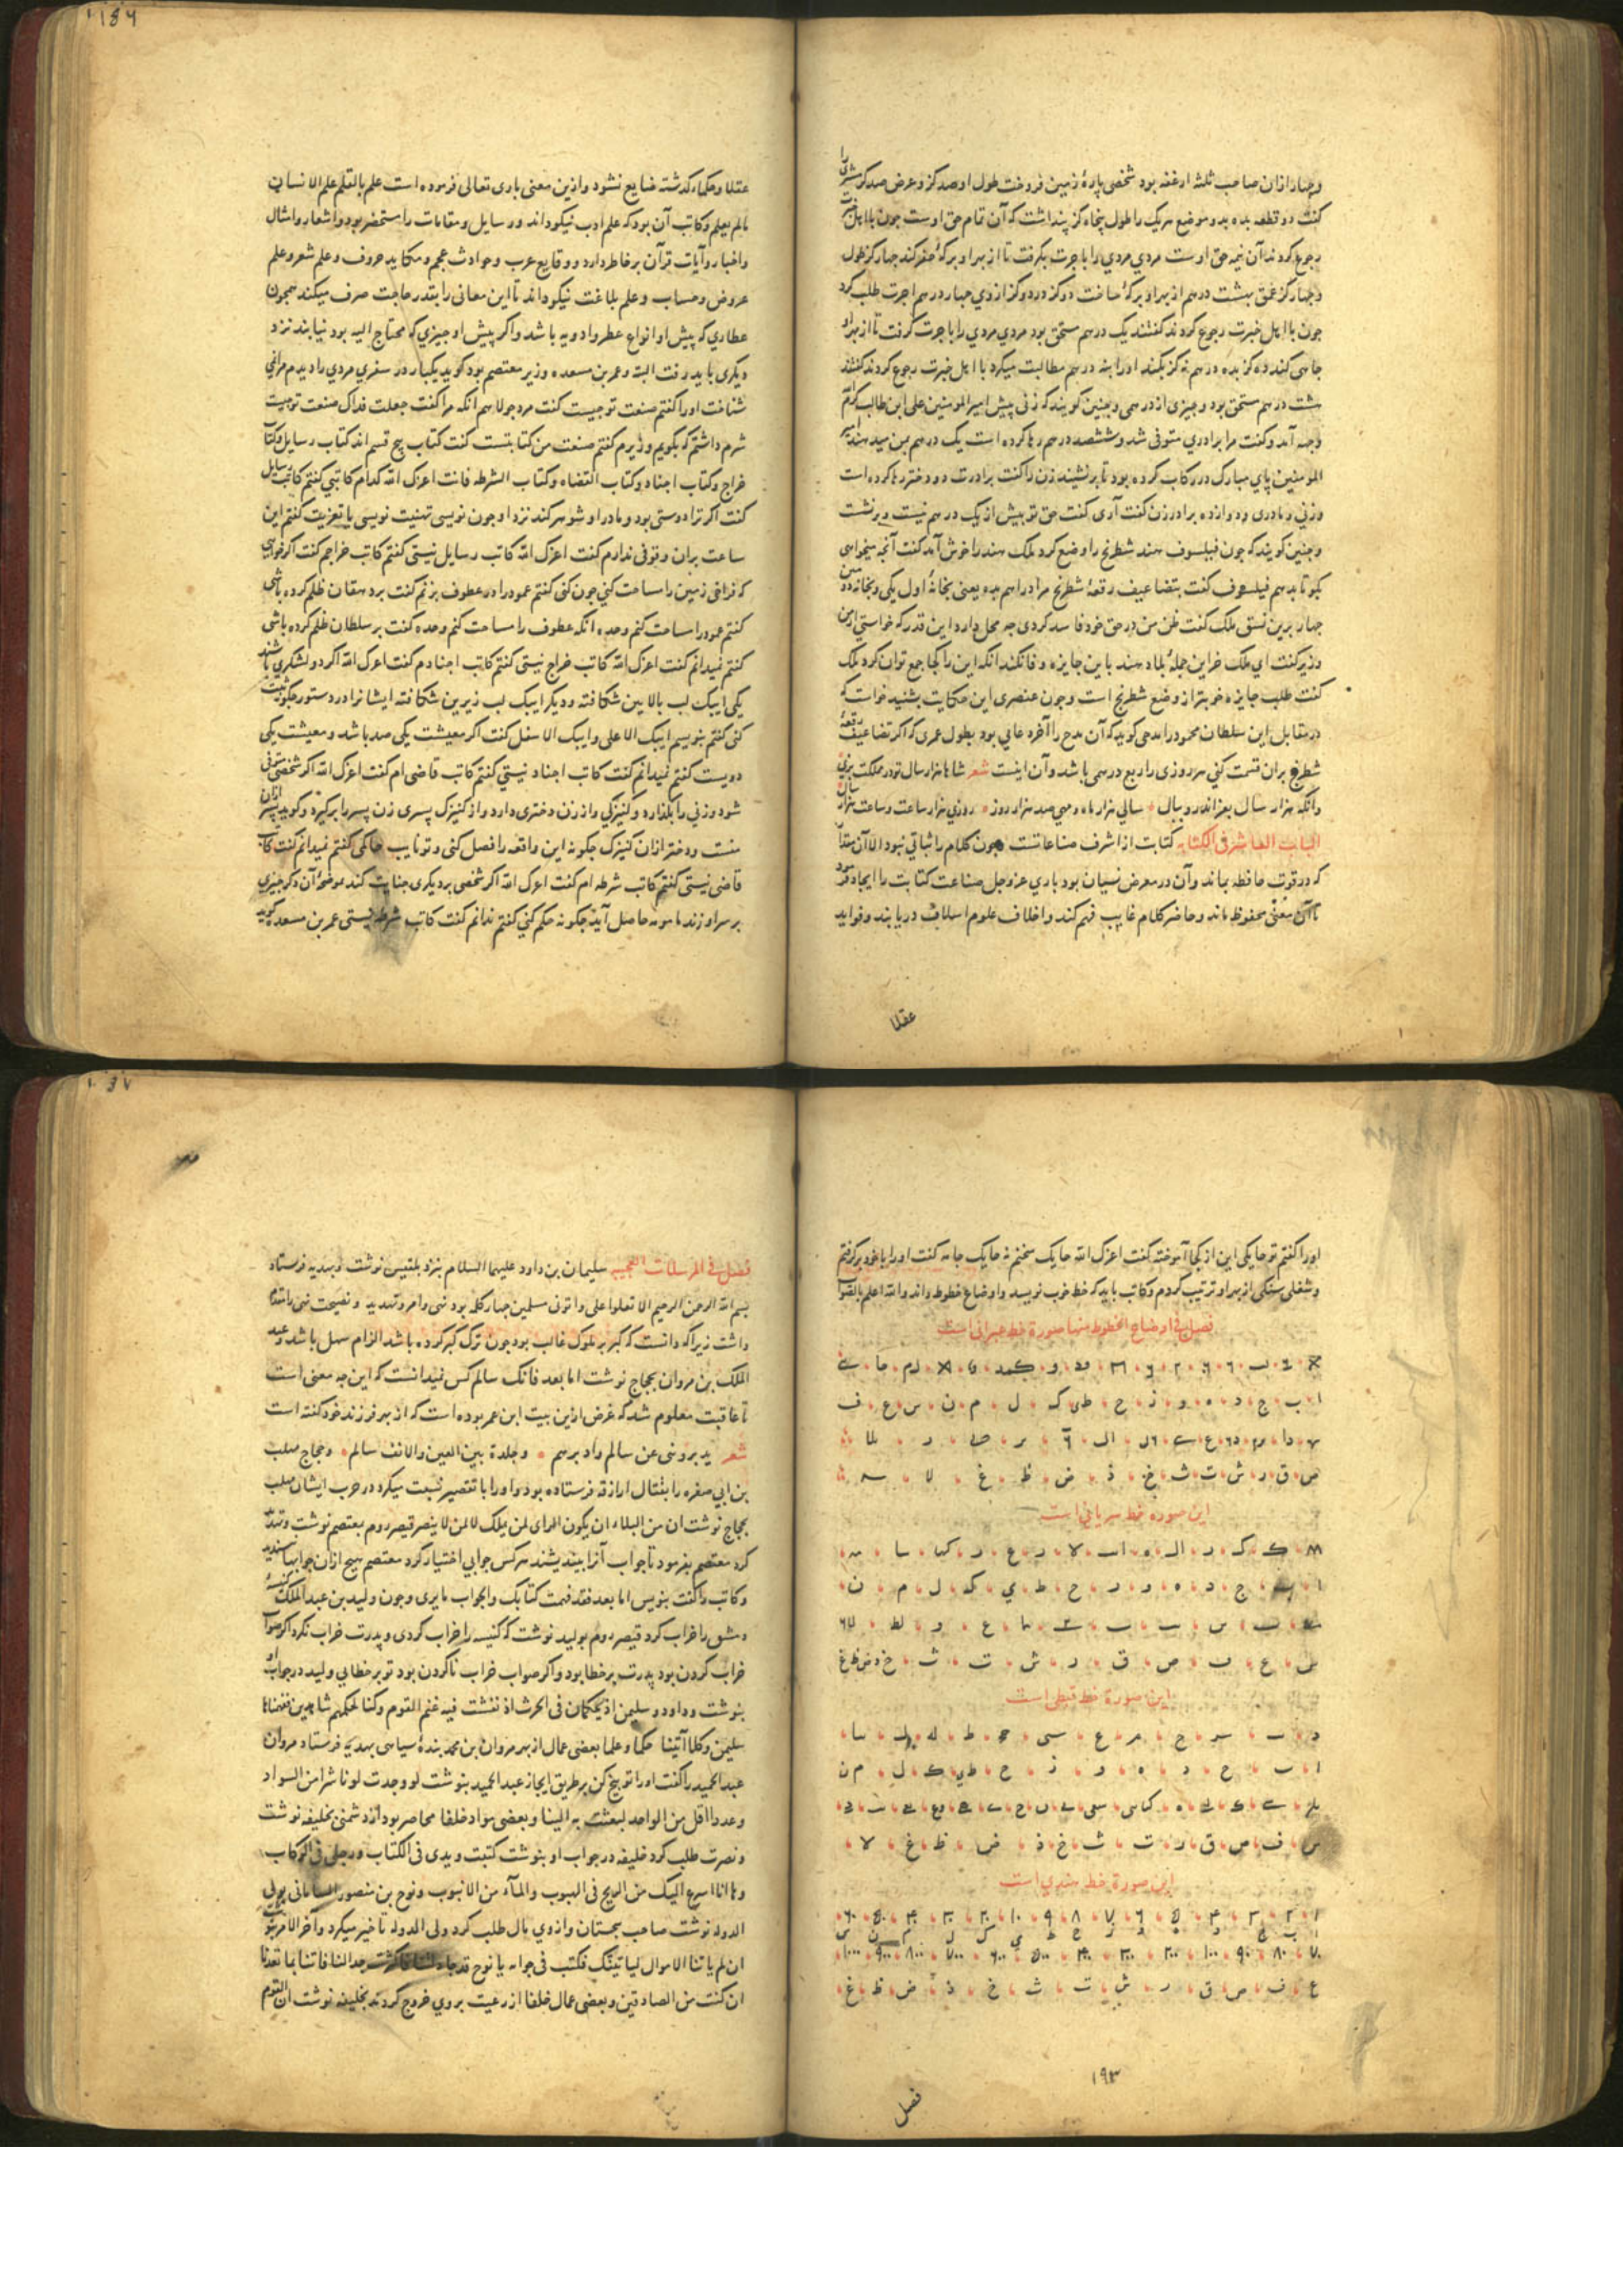 وچهار ازان صاحب ثلثه ارغفه بود شخصی پارهٔ زمین فروخت طول او صد کز وعرض صد کز مشتری را
کفت دو قطعه بده بدو موضع هریک را طول پنجاه کز پنداشت که آن تمام حق اوست چون با اهل خبرت
رجوع کردند آن نیمه حق اوست مردی مردی را باجرت بکرفت تا از بهر او برکهٔ حفر کند چهار کز طول
وچهار کز عمق بهشت درهم از بهر او برکهٔ ساخت دو کز در دو کز از وی چهار درهم اجرت طلب کرد
چون با اهل خبرت رجوع کردند کفتند یک درهم مستحق بود مردی مردی را باجرت کرفت تا از بهر او
چاهی کند ده کز بده درهم نه کز بکند او را بنه درهم مطالبت میکرد با اهل خبرت رجوع کردند کفتند
هشت درهم مستحق بود وچیزی از درهمی وچنین کویند که زنی پیش امیر المومنین علی ابن طالب کرم
وجهه آمد وکفت مرا برادری متوفی شد وششصد درهم رها کرده است یک درهم بمن میدهند امیر
المومنین پای مبارک در رکاب کرده بود تا برنشیند زن را کفت برادرت دو دختر رها کرده است
وزنی ومادری ودوازده برادر زن کفت آری کفت حق تو بیش از یک درهم نیست وبرنشست
وچنین کویند که چون فیلسوف هند شطرنج را وضع کرد ملک هند را خوش آمد کفت آنچه میخواهی
بکو تا بدهم فیلسوف کفت بتضاعیف رقعهٔ شطرنج مرا دراهم بده یعنی بخانهٔ اول یکی وبخانهٔ دو
چهار برین نسق ملک کفت ظن من در حق خود فاسد کردی چه محل دارد این قدر که خواستی از من
وزیر کفت ای ملک خراین جملهٔ بلاد هند باین جایزه وفا نکند انکه این را کجا جمع توان کرد ملک
کفت طلب جایزه خوبتر از وضع شطرنج است وچون عنصری این حکایت بشنید خواست که
در مقابل این سلطان محمود را مدحی کوید که آن مدح را آخره عایی بود بطول عمری که اکر تضاعیف رقعهٔ
شطرنج بران قسمت کنی هر روزی را ربع درهمی باشد وآن اینست شعر شاها هزار سال تو در مملکت بزی
وانکه هزار سال بعز اندرو ببال سالی هزار ماه ومهی صد هزار روز روزی هزار ساعت وساعت هزار سال
الباب العاشر فی الکتابه کتابت از اشرف صناعاتست چون کلام را ثباتی نبود الا آن مقدار
که در قوت حافظه بماند وآن در معرض نسیان بود باری عز وجل صناعت کتابت را ایجاد فرمود
تا آن معنی محفوظ ماند وحاضر کلام غایب فهم کند واخلاف علوم اسلاف دریابند وفواید
عقلا
عقلا وحکماء کذشته ضایع نشود وازین معنی باری تعالی فرموده است علم بالقلم علم الانسان
مالم یعلم وکاتب آن بود که علم ادب نیکو داند ورسایل ومقامات را مستحضر بود واشعار وامثال
واخبار وآیات قرآن بر خاطر دارد ووقایع عرب وحوادث عجم ومکاید حروف وعلم شعر وعلم
عروض وحساب وعلم بلاغت نیکو داند تا این معانی را بقدر حاجت صرف میکند همچون
عطاری که پیش او انواع عطر وادویه باشد واکر پیش او چیزی که محتاج الیه بود نیابند نزد
دیکری باید رفت البته وعمر بن مسعده وزیر معتصم بود کوید یکبار در سفری مردی را دیدم مرا نمی
شناخت او را کفتم صنعت تو چیست کفت مرد جولاهم انکه مرا کفت جعلت فداک صنعت تو چیست
شرم داشتم که بکویم وزیرم کفتم صنعت من کتابتست کفت کتاب پنج قسم اند کتاب رسایل وکتاب
خراج وکتاب اجناد وکتاب القضاه وکتاب الشرطه فانت اعزک الله کدام کاتبی کفتم کاتب رسایل
کفت اکر ترا دوستی بود ومادر او شوهر کند نزد او چون نویسی تهنیت نویسی یا تعزیت کفتم این
ساعت بران وقوفی ندارم کفت اعزک الله کاتب رسایل نیستی کفتم کاتب خراجم کفت اکر خواهی
که فراخی زمین را مساحت کنی چون کنی کفتم عمود را در عطوف بزنم کفت بر دهقان ظلم کرده باشی
کفتم عمود را مساحت کنم وحده انکه عطوف را مساحت کنم وحده کفت بر سلطان ظلم کرده باشی
کفتم نمیدانم کفت اعزک الله کاتب خراج نیستی کفتم کاتب اجنادم کفت اعزک الله اکر دو لشکری باشند
یکی ایبک لب بالایین شکافته ودیکر ایبک لب زیرین شکافته ایشانرا در دستور چکونه ثبت
کنی کفتم بنویسم ایبک الاعلی وایبک الاسفل کفت اکر معیشت یکی صد باشد ومعیشت یکی
دویست کفتم نمیدانم کفت کاتب اجناد نیستی کفتم کاتب قاضی ام کفت اعزک الله اکر شخصی متوفی
شود وزنی را بکذارد وکنیزکی واز زن دختری دارد واز کنیزک پسری زن پسر را برکیرد وکوید پسر ازان
منست ودختر ازان کنیزک چکونه این واقعه را فصل کنی وتو نایب حاکمی کفتم نمیدانم کفت کاتب
قاضی نیستی کفتم کاتب شرطه ام کفت اعزک الله اکر شخصی بر دیکری جنایت کند موضحهٔ آن دکر چیزی
بر سر او زند مامونه حاصل آید چکونه حکم کنی کفتم ندانم کفت کاتب شرطه نیستی عمر بن مسعده کوید
او را کفتم تو حایکی این از کجا آموخته کفت اعزک الله حایک سخنم نه حایک جامه کفت او را با خود برکرفتم
وشغلی سنکی از بهر او ترتیب کردم وکاتب باید که خط خوب نویسد واوضاع خطوط داند والله اعلم بالصواب
فصل فی اوضاع الخطوط منها صورة خط عبرانی است
ا ب ج د ه و ز ح ط ی ک ل م ن س ع ف
ص ق ر ش ت ث خ ذ ض ظ غ لا
این صوره خط سریانی است
ا ب ج د ه و ز ح ط ی ک ل م ن
س ع ف ص ق ر ش ت ث خ ذ ض ظ غ
این صورة خط قبطی است
ا ب ج د ه و ز ح ط ی ک ل م ن
س ف ص ق ر ت ث خ ذ ض ظ غ لا
این صورة خط هندی است
۱ ۲ ۳ ۴ ۵ ۶ ۷ ۸ ۹ ۱۰ ۲۰ ۳۰ ۴۰ ۵۰ ۶۰
ا ب ج د ه و ز ح ط ی ک ل م ن س
۷۰ ۸۰ ۹۰ ۱۰۰ ۲۰۰ ۳۰۰ ۴۰۰ ۵۰۰ ۶۰۰ ۷۰۰ ۸۰۰ ۹۰۰ ۱۰۰۰
ع ف ص ق ر ش ت ث خ ذ ض ظ غ
۱۹۳
فصل
فصل فی المرسلات العجیبه سلیمان بن داود علیهما السلام بنزد بلقیس نوشت وبهدیه فرستاد
بسم الله الرحمن الرحیم الا تعلوا علی واتونی مسلمین چهار کلمه بود نهی وامر وتهدید ونصیحت
داشت زیرا که دانست که کبر بر ملوک غالب بود چون ترک کبر کرده باشد الزام سهل باشد وعبد
الملک بن مروان بحجاج نوشت اما بعد فانک سالم کس نمیدانست که این چه معنی است
تا عاقبت معلوم شد که غرض ازین بیت ابن عمر بوده است که از بهر فرزند خود کفته است
شعر یدیرونی عن سالم وادیرهم وجلدة بین العین والانف سالم وحجاج مهلب
بن ابی صفره را بقتال ازارقه فرستاده بود واو را با تقصیر نسبت میکرد در حرب ایشان مهلب
بحجاج نوشت ان من البلاء ان یکون الرای لمن یملک لا لمن لا ینصر قیصر روم بمعتصم نوشت وتهدید
کرد معتصم بفرمود تا جواب آنرا بیندیشند هرکس جوابی اختیار کرد معتصم هیچ ازان جوابها نپسندید
وکاتب را کفت بنویس اما بعد فقد فهمت کتابک والجواب ما یری وچون ولید بن عبد الملک کنیسهٔ
دمشق را خراب کرد قیصر روم بولید نوشت که کنیسه را خراب کردی وپدرت خراب نکرد اکر صواب
خراب کردن بود پدرت بر خطا بود واکر صواب خراب ناکردن بود تو بر خطایی ولید در جواب او
بنوشت وداود وسلیمن اذ یحکمان فی الحرث اذ نفشت فیه غنم القوم وکنا لحکمهم شاهدین ففهمناها
سلیمن وکلا آتینا حکما وعلما بعضی عمال از بهر مروان بن محمد بندهٔ سیاهی بهدیه فرستاد مروان
عبد الحمید را کفت او را توبیخ کن بر طریق ایجاز عبد الحمید بنوشت لو وجدت لونا شرا من السواد
وعددا اقل من الواحد لبعثت به الینا وبعضی سواد خلفا محاصر بود از دشمنی بخلیفه نوشت
ونصرت طلب کرد خلیفه در جواب او بنوشت کتبت ویدی فی الکتاب ورجلی فی الرکاب
وها انا اسرع الیک من الریح فی الهبوب والمآء من الانبوب ونوح بن منصور السامانی بولی
الدوله نوشت صاحب سجستان واز وی مال طلب کرد ولی الدوله تاخیر میکرد وآخر الامر بنوشت
ان لم یاتنا الاموال لیاتینک فکتب فی جوابه یا نوح قد جادلتنا فاکثرت جدالنا فاتنا بما تعدنا
ان کنت من الصادقین وبعضی عمال خلفا از رعیت بروی خروج کردند بخلیفه نوشت ان القوم